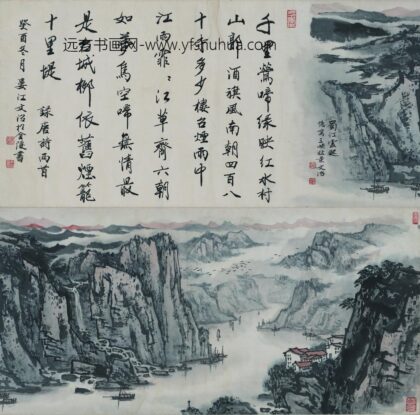 蜀江雲
千里鶯啼綠映紅水村
山郭酒旗風南朝四百八
十寺多少樓台煙雨中
江雨霏〻江草齊六朝
如夢鳥空啼無情最
是台城柳依舊煙籠
十里堤 錄唐詩兩首
癸酉冬月 婁江文治於金陵書
书画网-www.yfshuhua.com